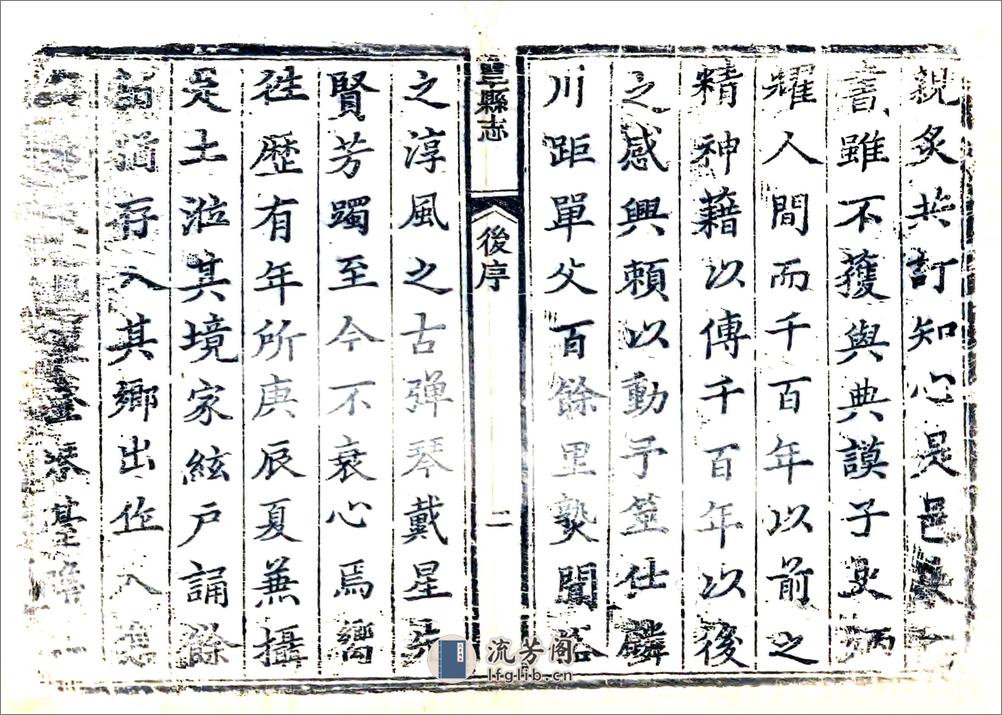 親炙共訂知心是邑
書雖不獲與典謨子史
耀人間而千百年以前之
精神藉以傳千百年以後
之感興賴以動予筮仕鱗
川距單父百餘里熟聞
單縣志
後序
二
之淳風之古彈琴戴星先
賢芳躅至今不衰心焉嚮
徃歷有年所庚辰夏兼攝
是土涖其境家絃戶誦餘
存入其鄉出作入
登琴臺
流芳阁
lfglib.cn